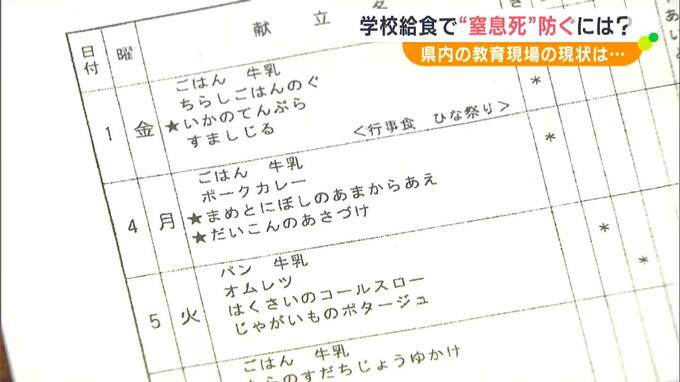 学校給食で“窒息死”防ぐには？
県内の教育現場の現状は…
日付
曜
献立名
1
金
ごはん 牛乳
ちらしごはんのぐ
★いかのてんぷら
すましじる
＜行事食 ひな祭り＞
*
4
月
ごはん 牛乳
ポークカレー
★まめとにぼしのあまからあえ
★だいこんのあさづけ
*
5
火
パン 牛乳
オムレツ
はくさいのコールスロー
じゃがいものポタージュ
*
*
ごはん 牛乳
らのすだちじょうゆかけ
*